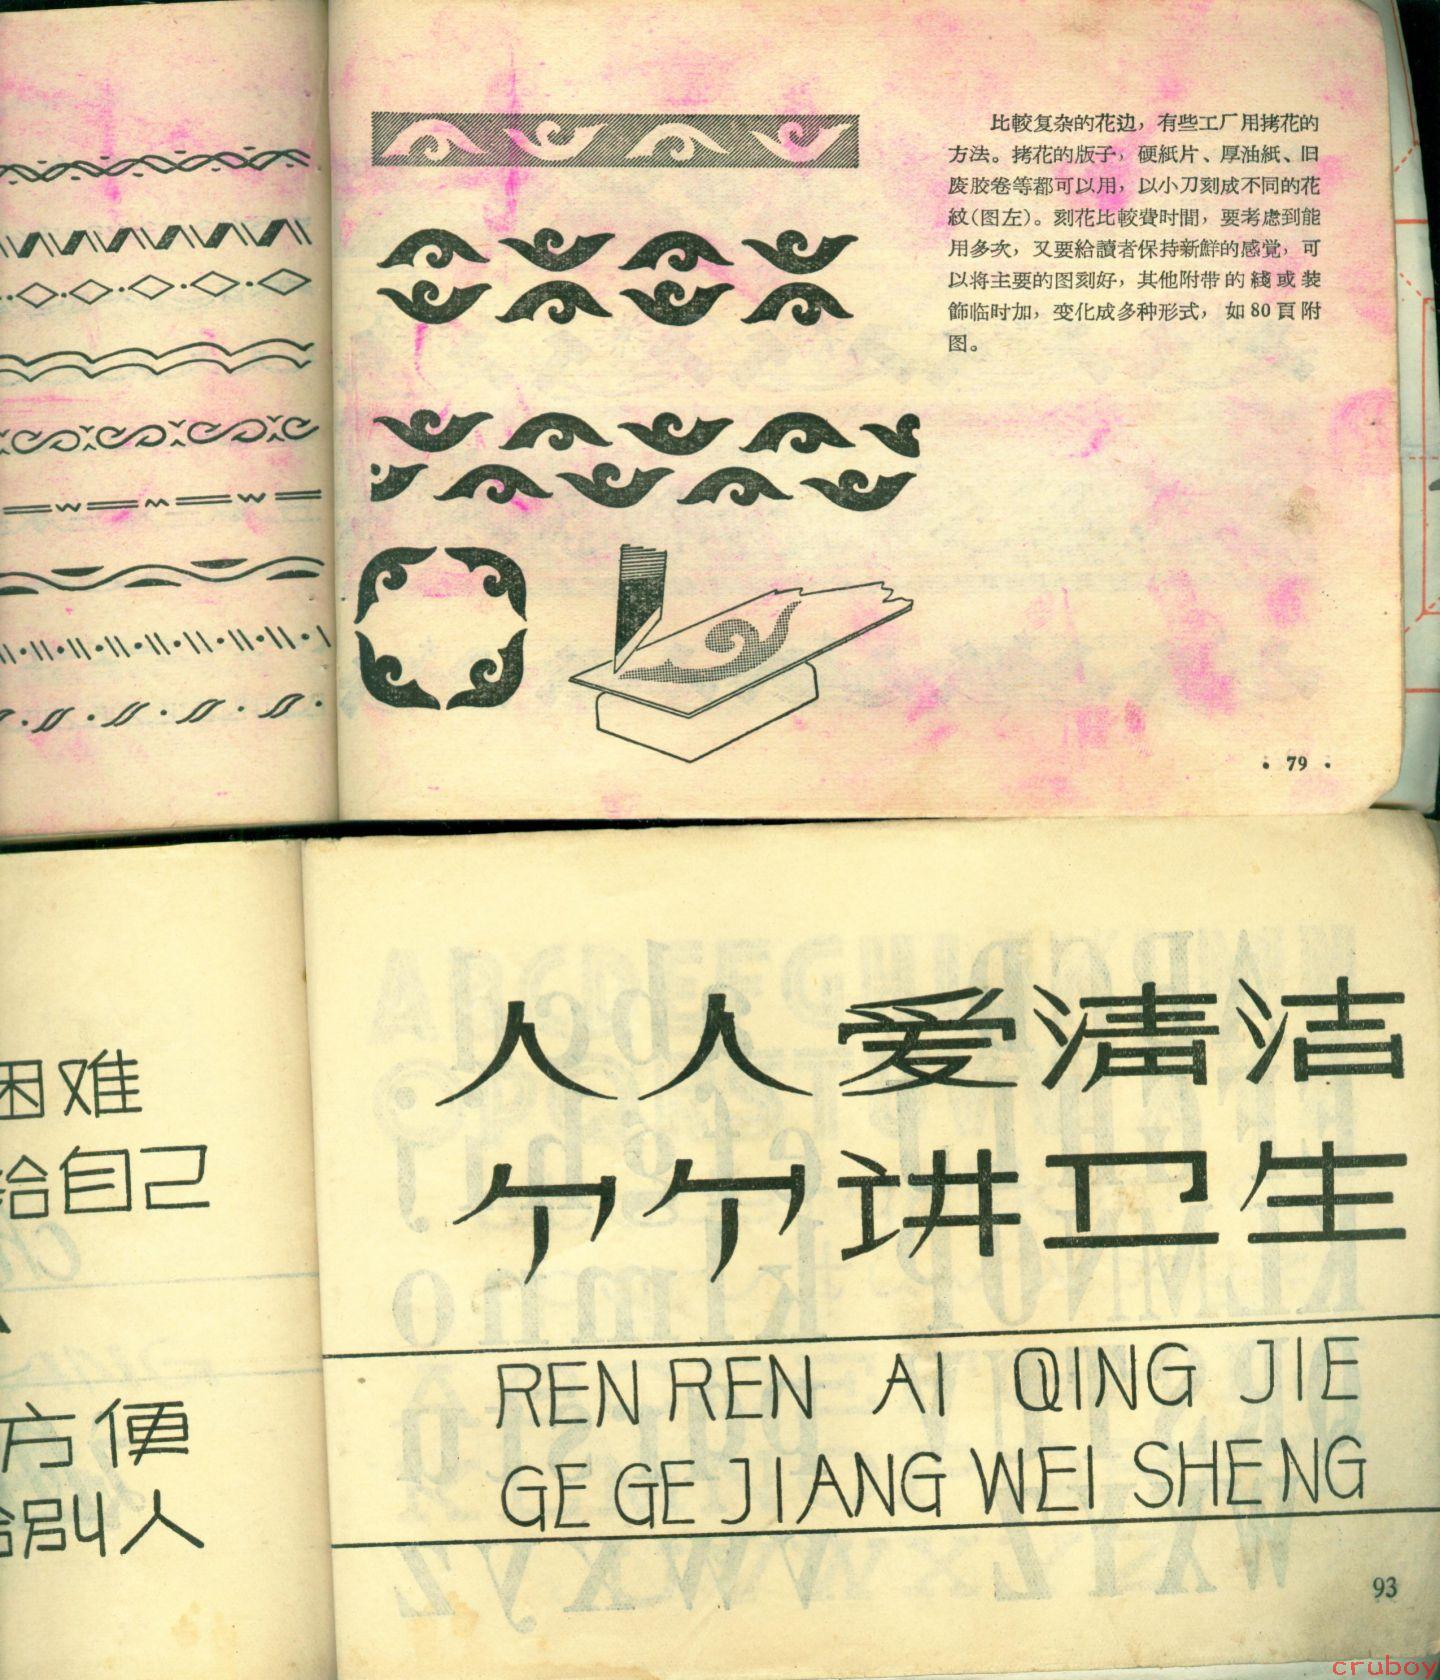 比較复杂的花边，有些工厂用拷花的
方法。拷花的版子，硬紙片、厚油紙、旧
废胶卷等都可以用，以小刀刻成不同的花
紋(图左)。刻花比較費时間，要考慮到能
用多次，又要給讀者保持新鮮的感觉，可
以将主要的图刻好，其他附带的綫或装
飾临时加，变化成多种形式，如80頁附
图。
· 79 ·
困难
给自己
方便
给别人
人人爱清洁
个个讲卫生
REN REN AI QING JIE
GE GE JIANG WEI SHENG
93
cruboy